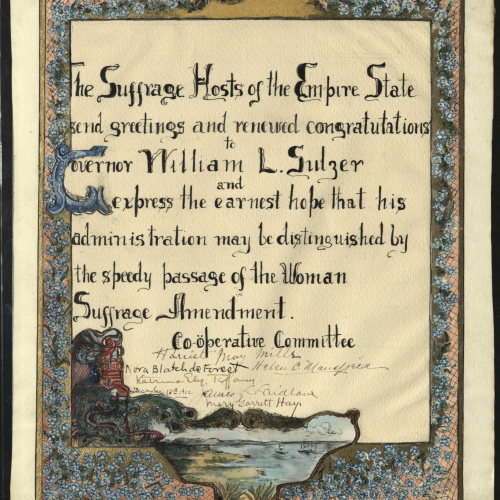 The Suffrage Hosts of the Empire State
send greetings and renewed congratutations
to
Governor William L. Sulzer
and
express the earnest hope that his
administration may be distinguished by
the speedy passage of the Woman
Suffrage Amendment.
Co-öperative Committee
Harriet May Mills
Nora Blatch de Forest Helen C. Mansfield
Katrina Ely Tiffany
December 12th 1912
Laidlaw
Mary Garrett Hay